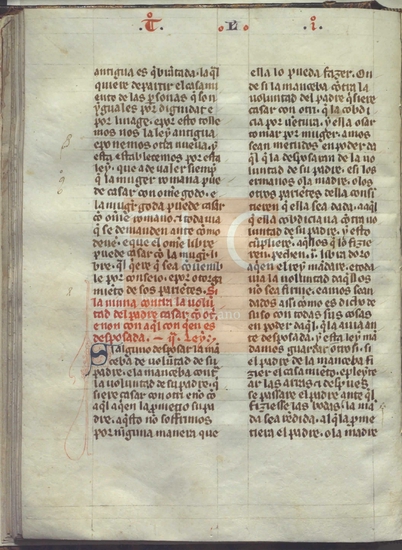 T L i
antigua es q̃brãtada. la q̃l
quiere departir el casami
ento de las ꝑsonas q̃ son
yguales por dignidat e
por linage. e por esto tolle
mos nos la ley antigua
e ponemos otra nueua. y
esta establecemos por esta
ley. que a de ualer siemp̃
q̃ la muger romana pue
de casar con om̃e godo. e
la mugi goda puede casar
cõ om̃e romano. e toda uia
que se demanden ante como
deue. e que el om̃e libre
puede casar cõ la mugi li
bre. q̃l q̃ere q̃ sea cõuenib
le por conseio. e por otorga
miẽto de sos pariẽtes. Si
la ninna contra la uolũ
tad del padre casar cõ otro
e non con aq̃l con qen es
desposada. — ii. Ley.
Si alguno desposar la mã
ceba de uoluntad de su
padre. e la manceba cont̃
la uoluntad de su padre. q̃
siere casar con otri e no cõ
aq̃l a qen la ꝓmetio su pa
dre. aq̃sto no soffrimos
por nĩguna manera que
ella lo pueda fazer. On
de si la manceba cõtra la
uoluntad del padre q̃siere
casar con otri. q̃ la cobdi
cia por uẽtura. y ella osar
tomar por mugier. amos
sean metidos en poder da
q̃l q̃ la desposaran de la uo
luntad de su padre. e si los
ermanos o la madre. o los
otros parientes della consĩ
tieren q̃ ella sea dada. a aq̃l
q̃ ella cobdiciaua cõtra uo
luntad de su padre. y esto
cũpliere. aq̃llos q̃ lo fizie
ren. pechen. i. libra doro
a qen el rey mãdare. e toda
uia la uoluntad daq̃llos
no sea firme. e amos sean
dados assi como es dicho de
suso con todas sus cosas
en poder daq̃l. q̃ la auia an
te desposada. y esta ley mã
damos guardar otro si. si
el padre de la manceba fi
zier el casamiẽto. e pleyte
ar las arras. e despues
se passare el padre ante q̃l
fiziesse las bodas. la mã
da sea redida. al q̃ la ꝓme
tiera el padre. o la madre